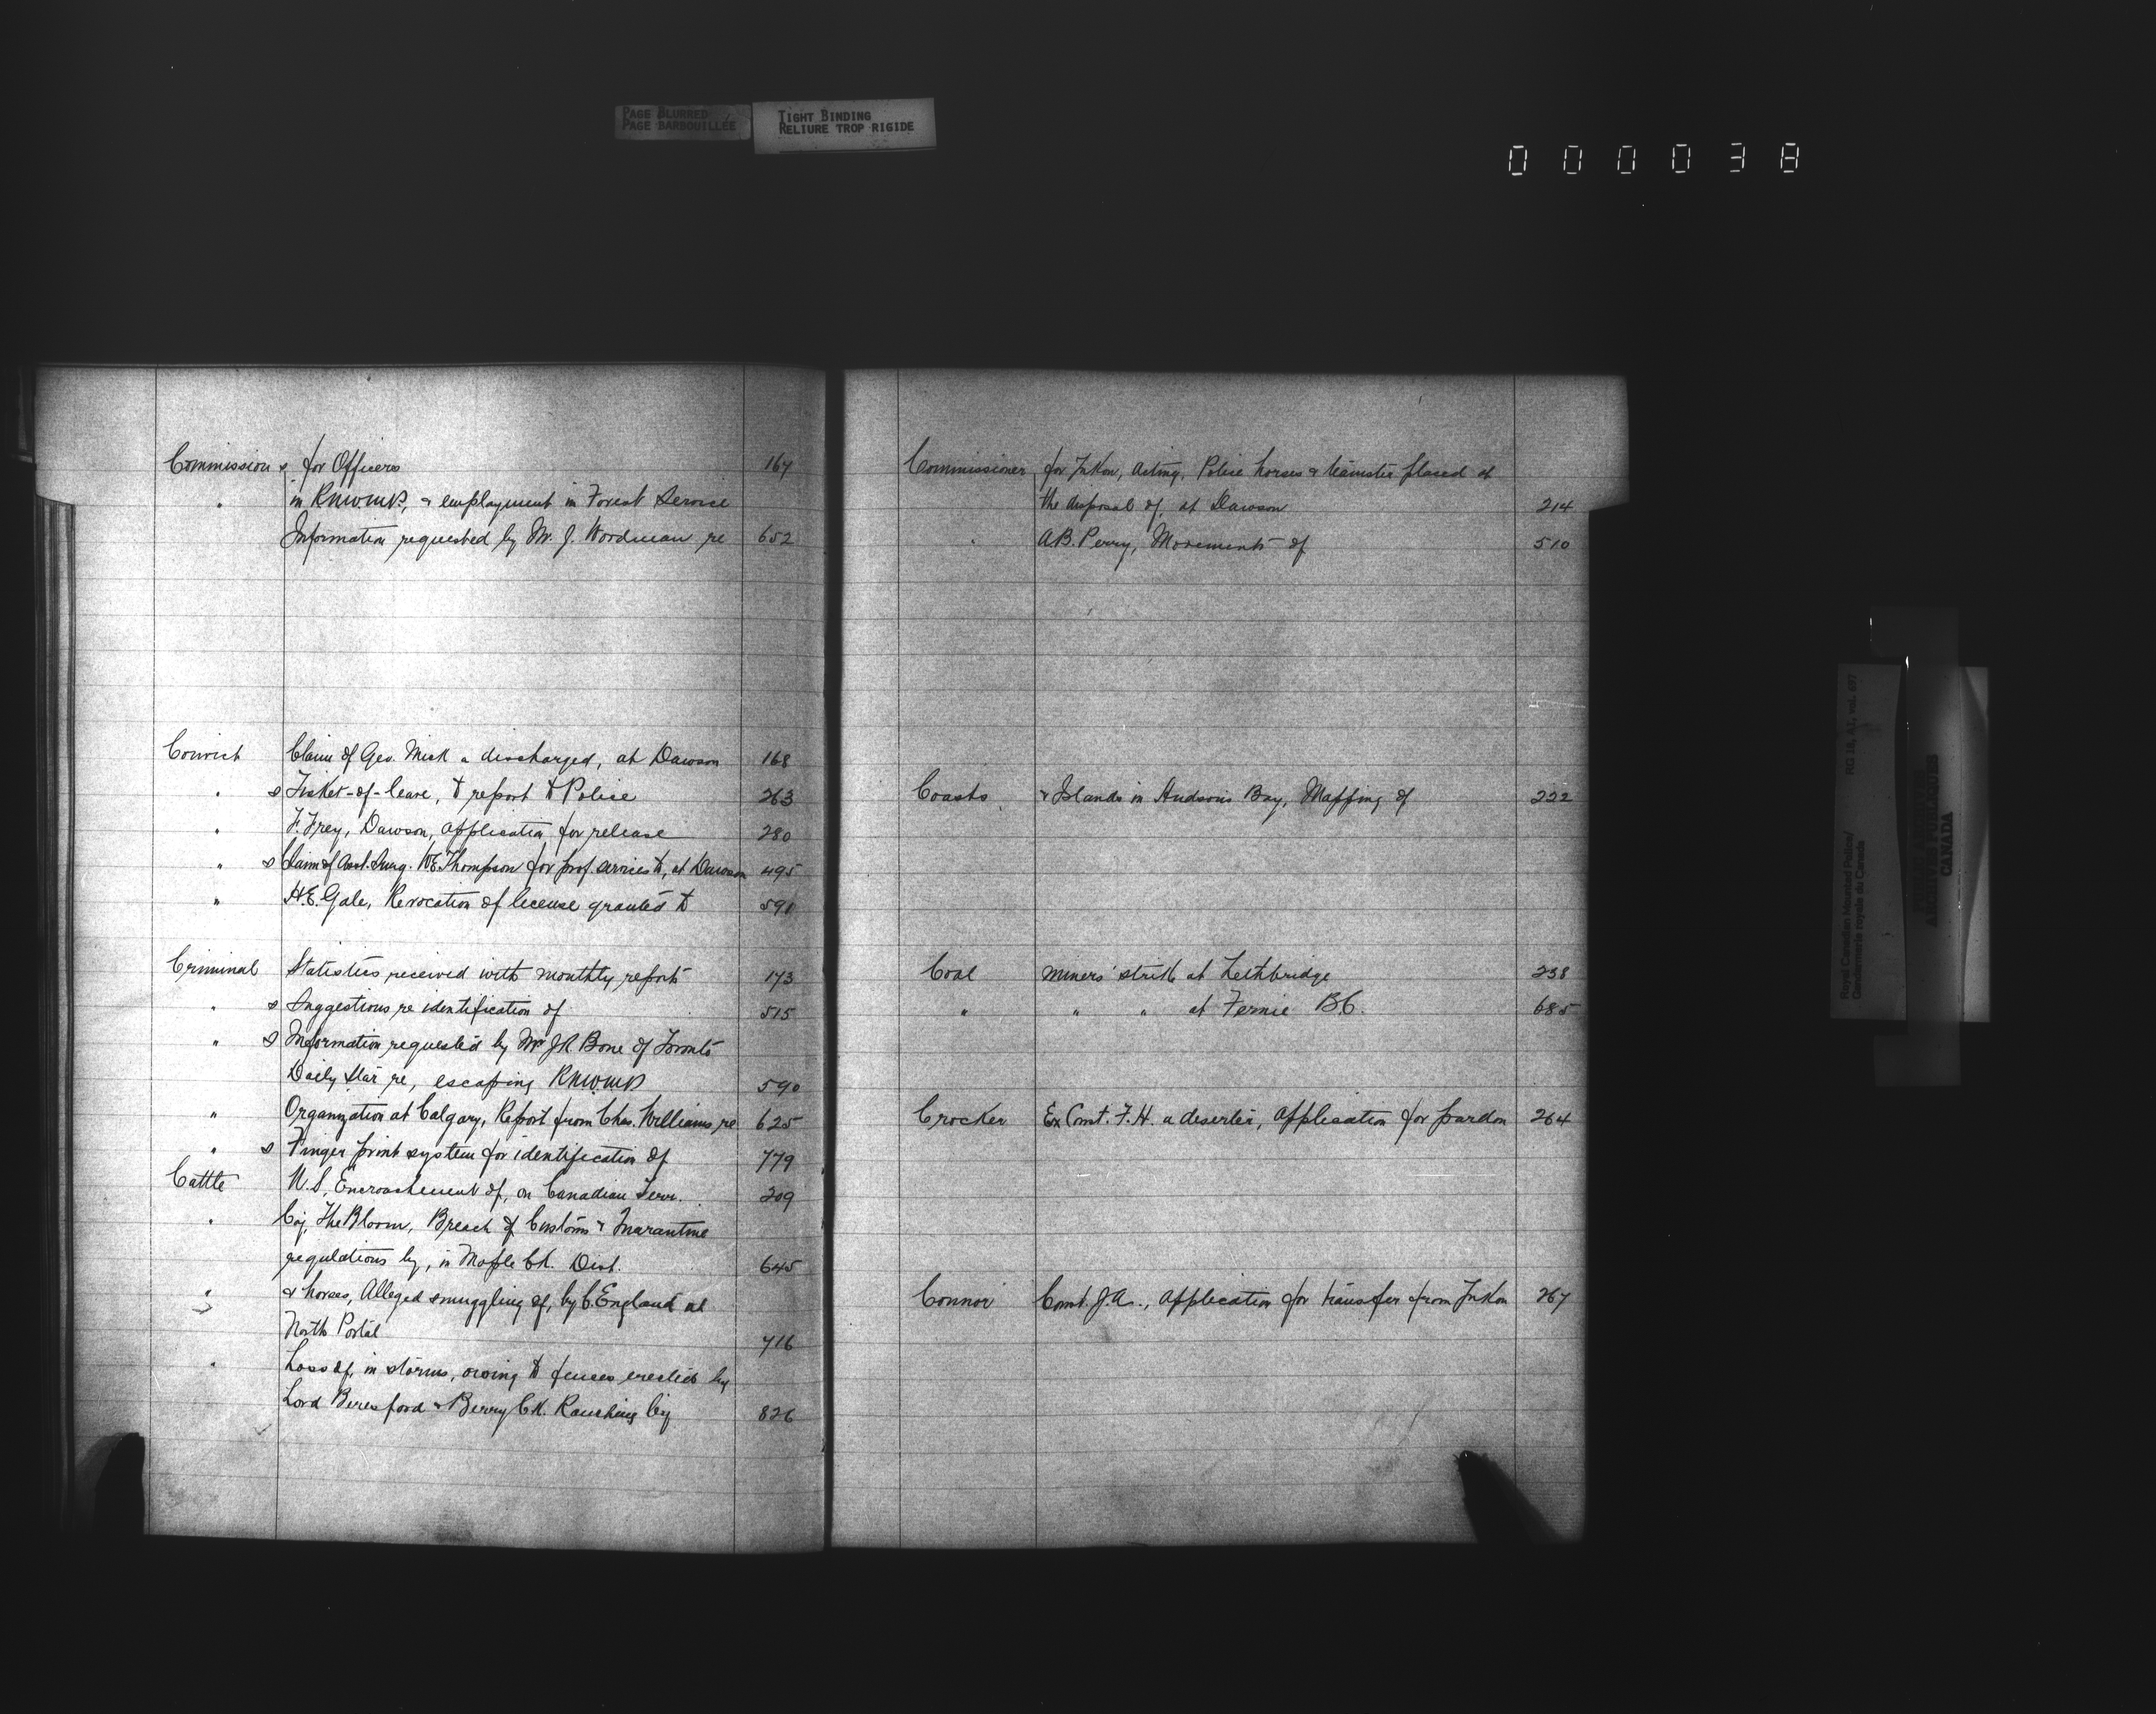 PAGE BLURRED
PAGE BARBOUILLÉE
TIGHT BINDING
RELIURE TROP RIGIDE
000038
Commission s for Officers 167
" in RNWMP, & employment in Forest Service
Information requested by Mr. J. Woodman re 652
Convict Claim of Geo. Mick a discharged, at Dawson 168
" s Ticket-of-leave, to report to Police 263
" F. Frey, Dawson, application for release 280
" s Claim of Asst. Surg. W.E. Thompson for prof. services to, at Dawson 495
" H.E. Gale, Revocation of license granted to 591
Criminal Statistics received with monthly reports 173
" s Suggestions re identification of 515
" s Information requested by Mr J R Bone of Toronto
Daily Star re, escaping RNWMP 590
" Organization at Calgary, Report from Chas. Williams, re 625
" s Finger print system for identification of 779
Cattle U.S. Encroachment of, on Canadian Terr. 209
" Coy. The Bloom, Breach of Customs & Quarantine
regulations by, in Maple Ck. Dist. 645
" & horses, Alleged smuggling of, by C. England at
North Portal 716
" Loss of, in storms, owing to fences erected by
Lord Beresford & Berry Ck. Ranching Coy 826
Commissioner for Yukon, Acting, Police horses & teamster placed at
the disposal of, at Dawson 214
" A.B. Perry, Movements of 510
Coasts & Islands in Hudson's Bay, Mapping of 222
Coal miners' strike at Lethbridge 238
" " " at Fernie B.C. 685
Crocker Ex Const. F.H. a deserter, application for pardon 264
Connor Const. J.A., application for transfer from Yukon 267
Royal Canadian Mounted Police/
Gendarmerie royale du Canada
RG 18, A1, vol. 697
PUBLIC ARCHIVES
ARCHIVES PUBLIQUES
CANADA